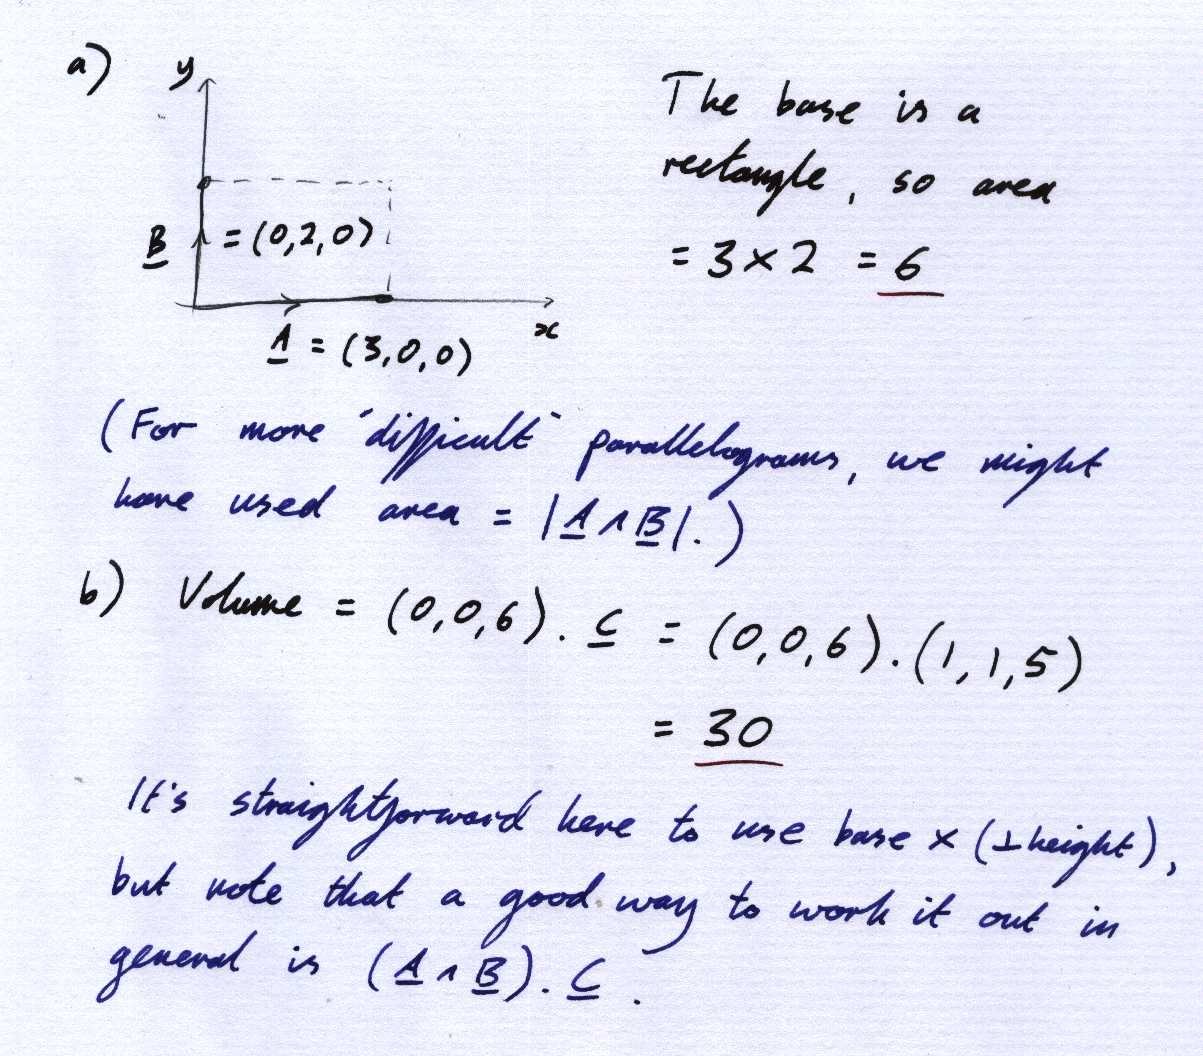 a)
y
The base is a
rectangle, so area
= 3 × 2 = 6
B = (0,2,0)
x
A = (3,0,0)
(For more "difficult" parallelograms, we might
have used area = |A ∧ B|.)
b) Volume = (0,0,6). C = (0,0,6).(1,1,5)
= 30
It's straightforward here to use base × (⊥ height),
but note that a good way to work it out in
general is (A ∧ B). C.